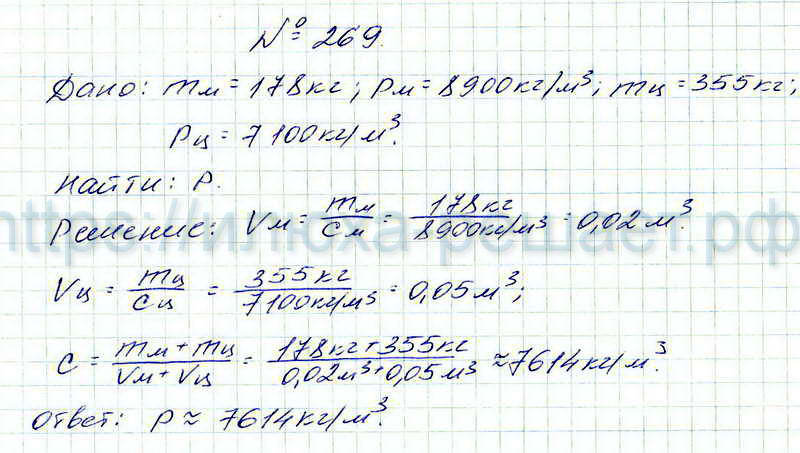 № 269.
Дано: mм = 178кг; ρм = 8900кг/м³; mц = 355кг;
ρц = 7100кг/м³.
Найти: ρ.
Решение: Vм = mм/Cм = 178кг/8900кг/м³ = 0,02м³.
Vц = mц/Cц = 355кг/7100кг/м³ = 0,05м³;
C = mм+mц/Vм+Vц = 178кг+355кг/0,02м³+0,05м³ ≈ 7614кг/м³.
Ответ: ρ ≈ 7614кг/м³.